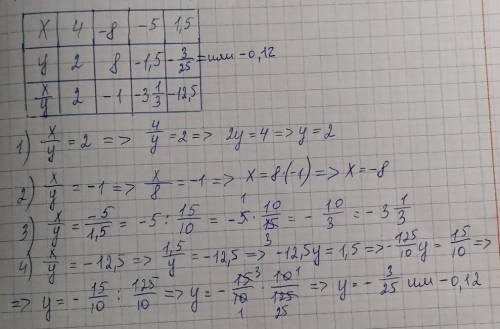 X 4 -8 -5 1,5
y 2 8 -1,5 -3/25 = или -0,12
x/y 2 -1 -3 1/3 -12,5
1) x/y = 2 => 4/y = 2 => 2y = 4 => y = 2
2) x/y = -1 => x/8 = -1 => X = 8·(-1) => X = -8
3) x/y = -5/1,5 = -5 : 15/10 = -5 1 · 10/15 3 = -10/3 = -3 1/3
4) x/y = -12,5 => 1,5/y = -12,5 => -12,5y = 1,5 => -125/10 y = 15/10 =>
=> y = -15/10 : 125/10 => y = -15 3/10 1 · 10 1/125 25 => y = -3/25 или -0,12